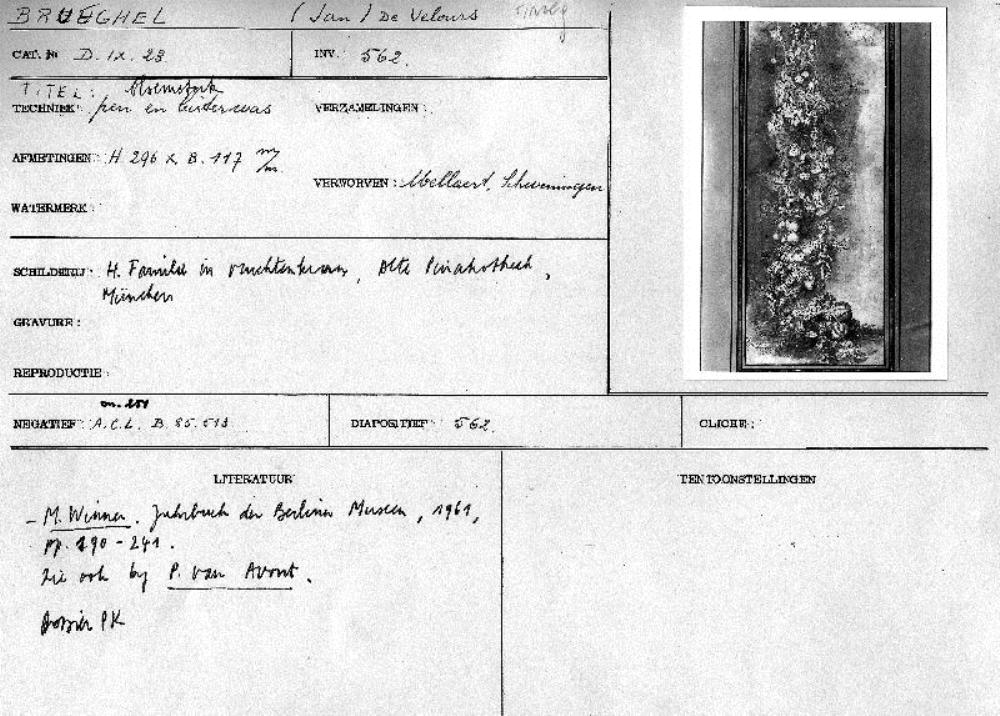 BRUEGHEL (Jan) De Velours
CAT. Nr D. IX. 23 INV. 562.
TITEL: Bloemstuk
TECHNIEK: pen en bisterwas VERZAMELINGEN:
AFMETINGEN: H 296 x B. 117 m/m.
VERWORVEN: Mellaert, Scheveningen
WATERMERK:
SCHILDERIJ: H. Familie in vruchtenkrans, Alte Pinakotheek,
München
GRAVURE:
REPRODUCTIE:
NEGATIEF: A.C.L. B. 85.513 DIAPOSITIEF: 562. CLICHE:
LITERATUUR
- M. Winner. Jahrbuch der Berliner Museen, 1961,
pp. 190-241.
Zie ook by P. van Avont.
Dossier PK
TENTOONSTELLINGEN